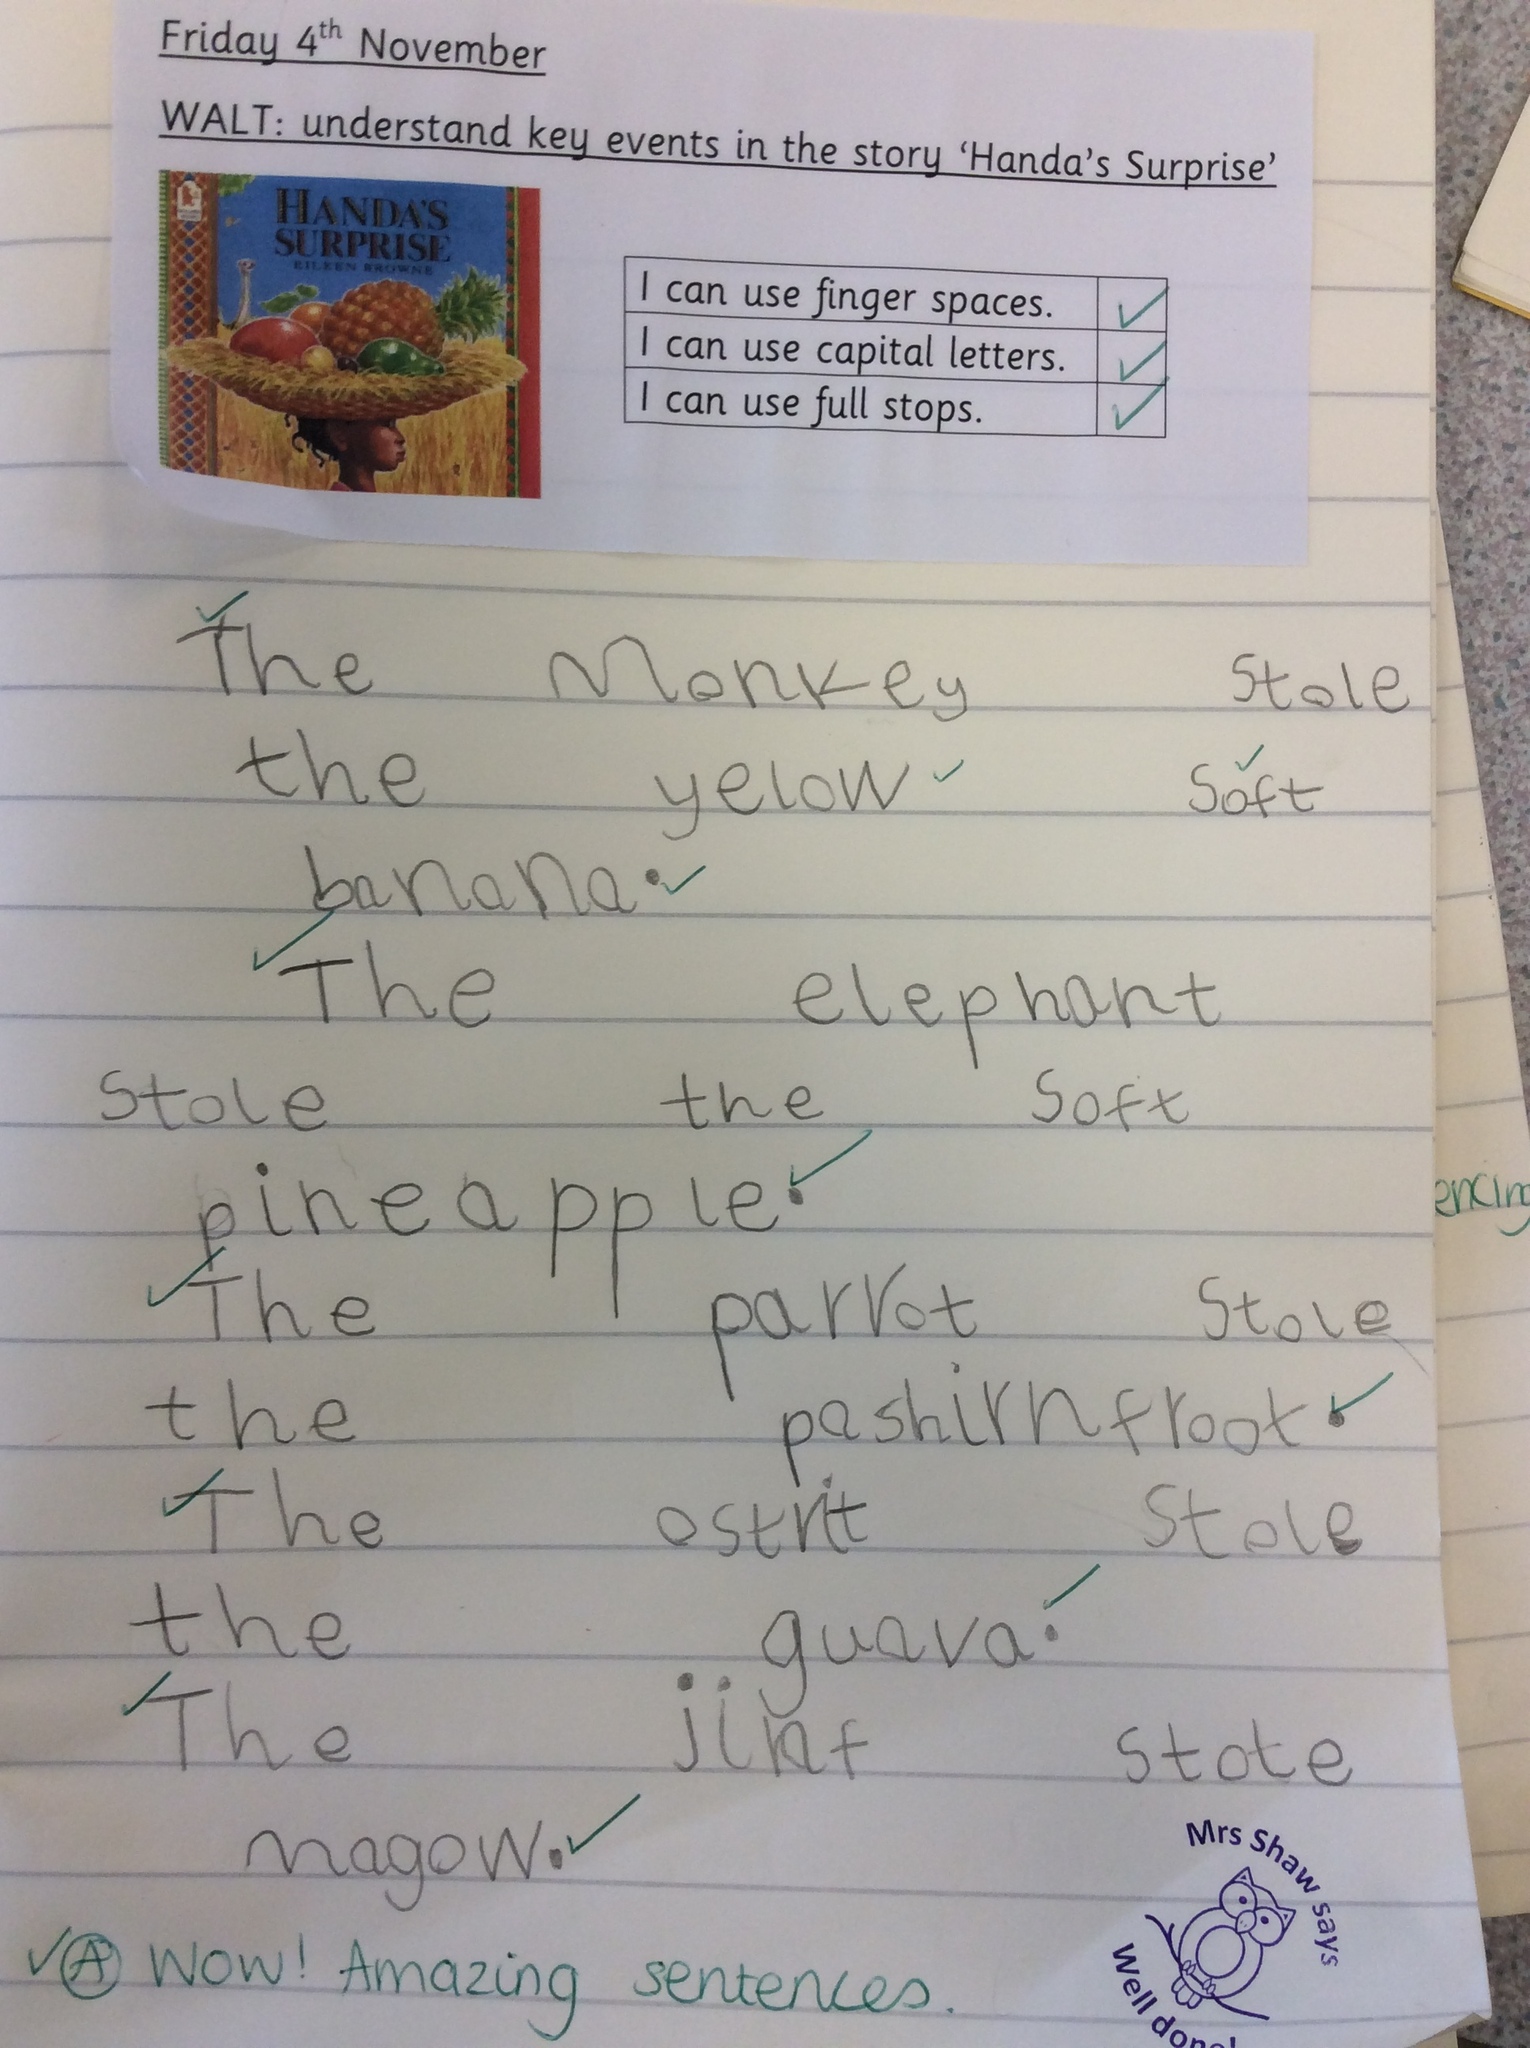 Friday 4th November
WALT: understand key events in the story 'Handa's Surprise'
HANDA'S
SURPRISE
EILEEN BROWNE
I can use finger spaces. ✓
I can use capital letters. ✓
I can use full stops. ✓
The Monkey Stole
the yelow Soft
banana.
The elephant
Stole the Soft
pineapple.
The parrot Stole
the pashirnfroot.
The ostrit Stole
the guava.
The jirnf stote
magow.
encing
✓ A Wow! Amazing sentences.
Mrs Shaw says
Well done!